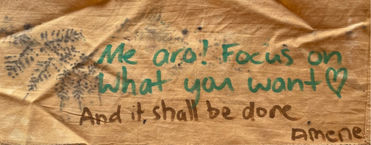 Me ara! Focus on
what you want♡
And it shall be done
Aimene